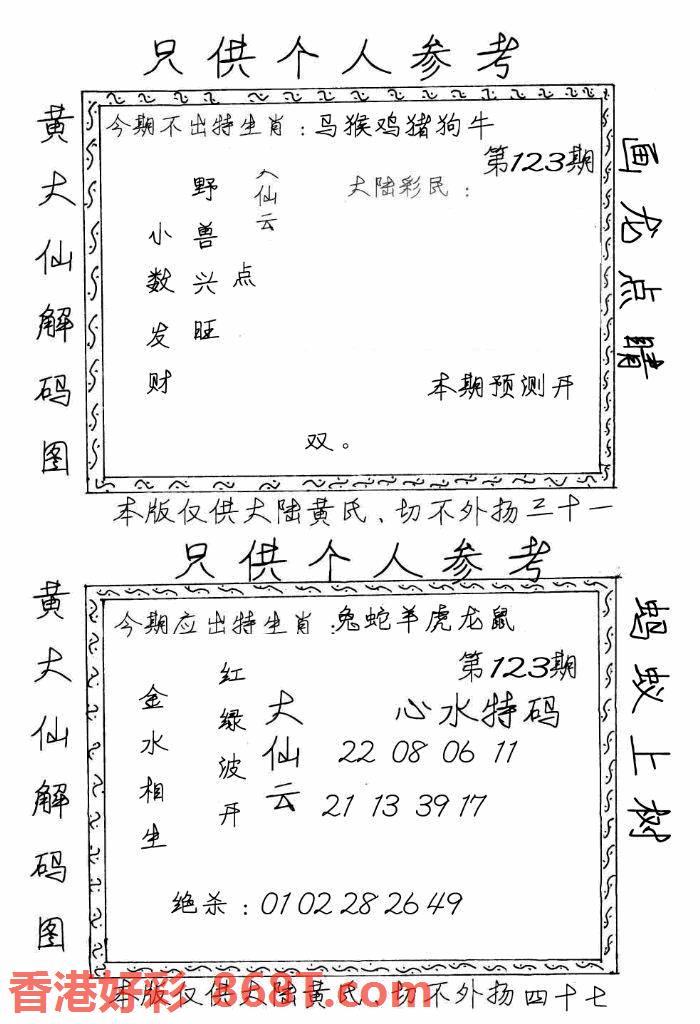 只供个人参考
黄大仙解码图
今期不出特生肖：马猴鸡猪狗牛
第123期
画龙点睛
大仙云
大陆彩民：
野兽兴旺
小数发财
点
本期预测开
双。
本版仅供大陆黄氏、切不外扬三十一
只供个人参考
黄大仙解码图
今期应出特生肖：兔蛇羊虎龙鼠
第123期
蚂蚁上树
金水相生
红绿波开
大仙云
心水特码
22 08 06 11
21 13 39 17
绝杀：01 02 28 26 49
本版仅供大陆黄氏、切不外扬四十七
香港好彩 868T.com